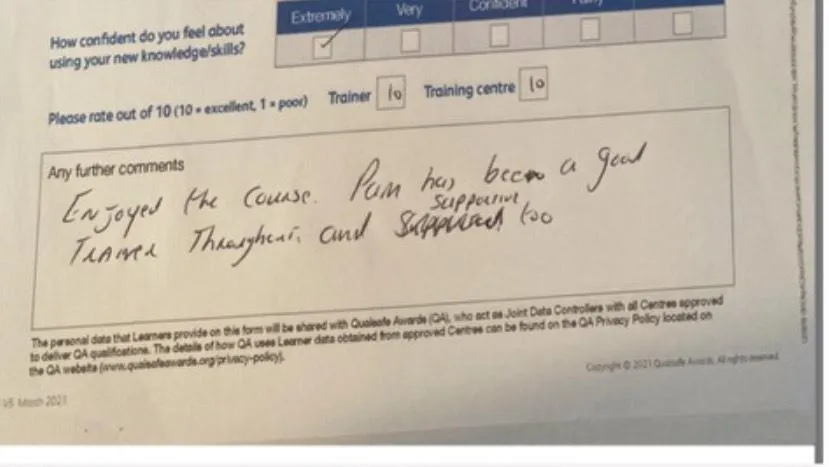 Extremely Very Confident
How confident do you feel about
using your new knowledge/skills?
Please rate out of 10 (10 = excellent, 1 = poor) Trainer 10 Training centre 10
Any further comments
Enjoyed the course. Pam has been a good
supportive
Trainer Throughout, and too
The personal data that Learners provide on this form will be shared with Qualsafe Awards (QA), who act as Joint Data Controllers with all Centres approved
to deliver QA qualifications. The details of how QA uses Learner data obtained from approved Centres can be found on the QA Privacy Policy located on
the QA website (www.qualsafeawards.org/privacy-policy).
Copyright © 2021 Qualsafe Awards. All rights reserved.
March 2021